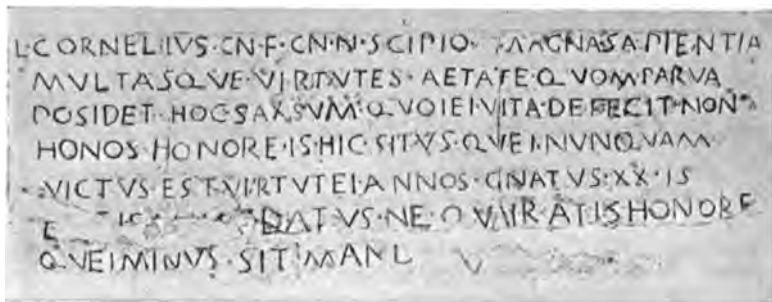 L·CORNELIVS·CN·F·CN·N·SCIPIO·MAGNA·SAPIENTIA
MVLTASQVE·VIRTVTES·AETATE·QVOM·PARVA
POSIDET·HOC·SAXSVM·QVOIEI·VITA·DEFECIT·NON
HONOS·HONORE·IS·HIC·SITVS·QVEI·NVNQVAM
VICTVS·EST·VIRTVTEI·ANNOS·GNATVS·XX·IS
DATVS·NE·QVAIRATIS·HONORE
QVEI·MINVS·SIT·MAN